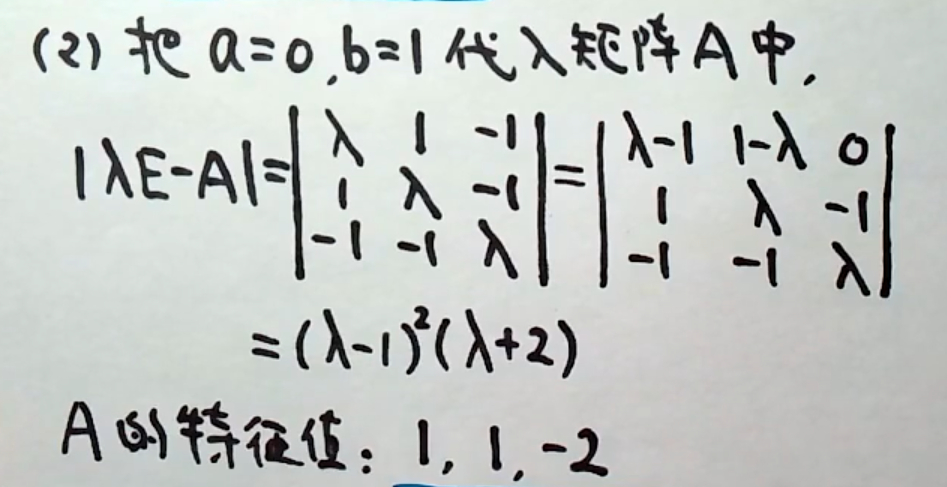 (2) 把 a=0,b=1代入矩阵A中,
|λE-A|=|λ 1 -1|=|λ-1 1-λ 0|
|1 λ -1| |1 λ -1|
|-1 -1 λ| |-1 -1 λ|
=(λ-1)²(λ+2)
A的特征值: 1, 1, -2